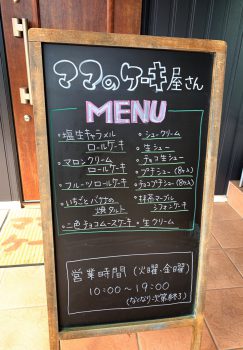 ママのケーキ屋さん
MENU
・塩生キャラメル
ロールケーキ
・マロンクリーム
ロールケーキ
・フルーツロールケーキ
・いちごとバナナの
焼タルト
・二色チョコムースケーキ
・シュークリーム
・生シュー
・チョコ生シュー
・プチシュー(8コ入)
・チョコプチシュー(8コ入)
・抹茶マーブル
シフォンケーキ
・生クリーム
営業時間(火曜・金曜)
10:00〜19:00
(なくなり次第終了)